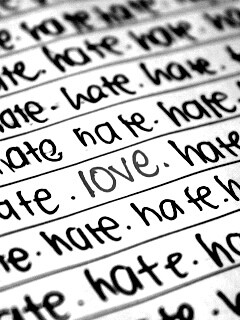 hate hate
hate. hate. hate
hate. hate. hate.
hate hate. hate.
hate. love. hate
hate. hate. hate.
hate. hate. ha
hate.